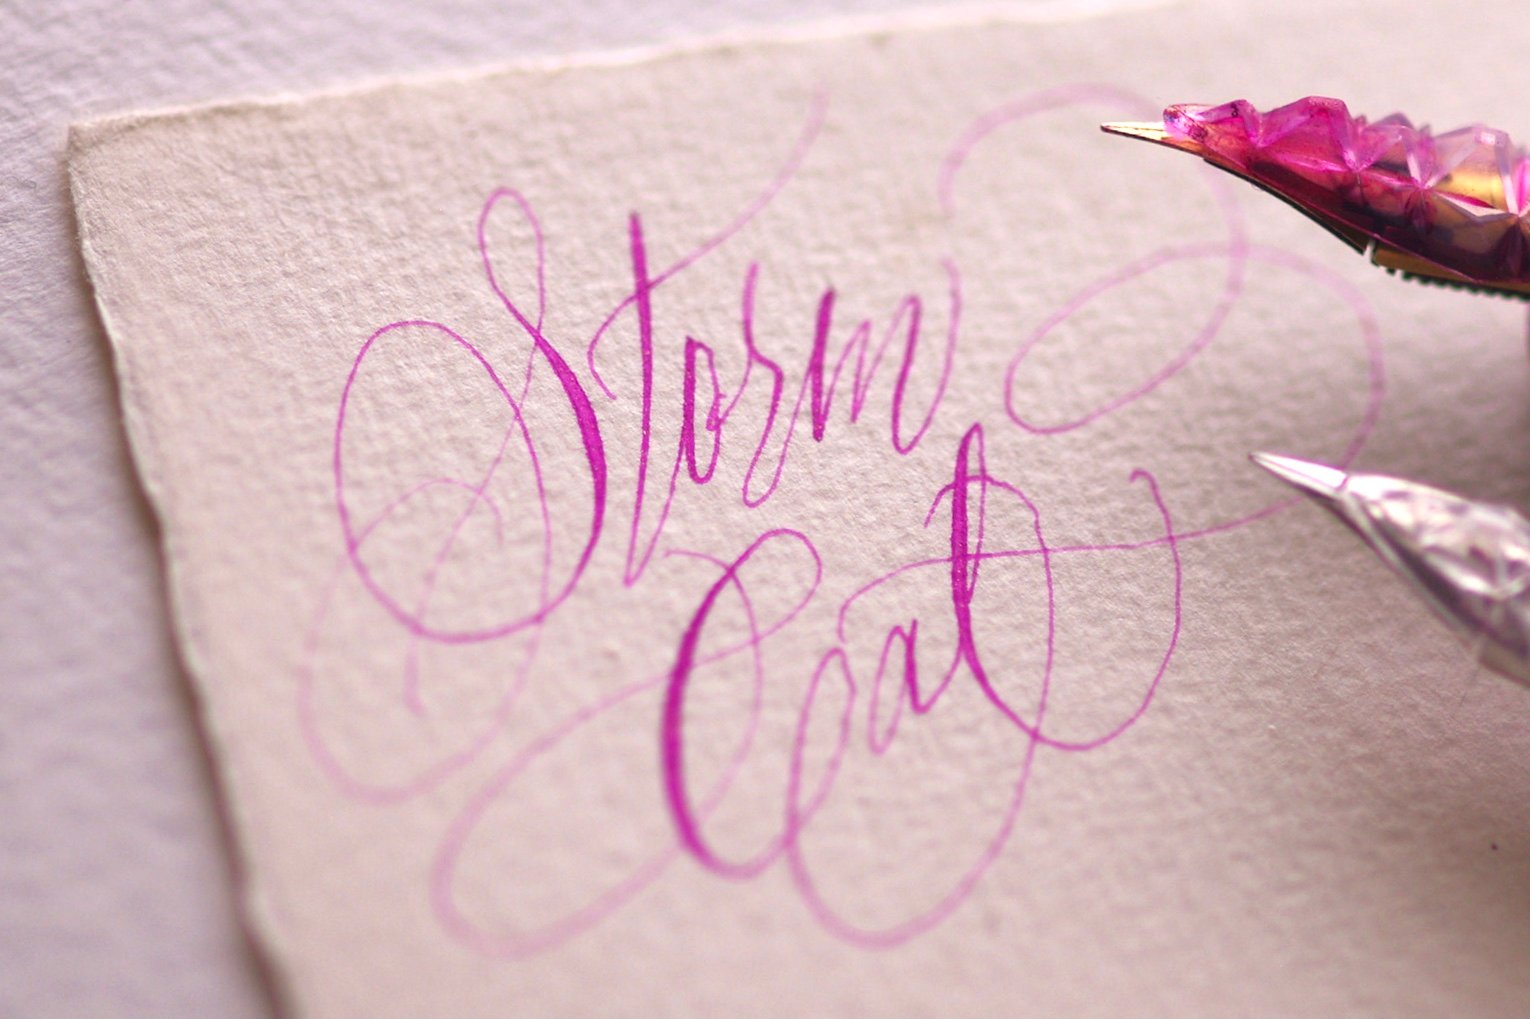 Storm
Coat